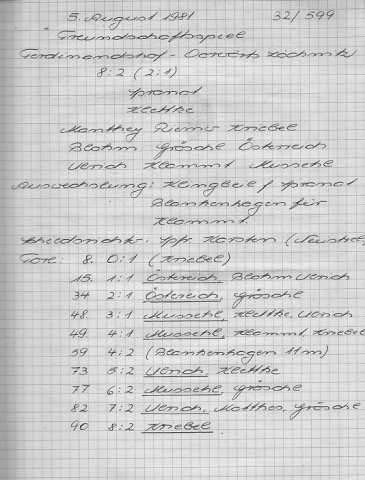 5. August 1981 32/599
Freundschaftsspiel
Ferdinandshof - Vorwärts Löcknitz
8:2 (2:1)
Pranat
Klettke
Manthey Riemer Kniebel
Blohm Grösche Österreich
Ulrich Klammt Mussehl
Auswechslung: Klingbeil f Pranat
Blankenhagen für
Klammt.
Schiedsrichter: Spfr. Karsten
Tore: 8. 0:1 (Kniebel)
15. 1:1 Österreich, Blohm Ulrich
34 2:1 Österreich, Grösche
48. 3:1 Mussehl, Klettke, Ulrich
49 4:1 Mussehl, Klammt, Kniebel
59 4:2 (Blankenhagen 11m)
73 5:2 Ulrich, Klettke
77 6:2 Mussehl, Grösche
82 7:2 Ulrich, Grösche
90 8:2 Kniebel